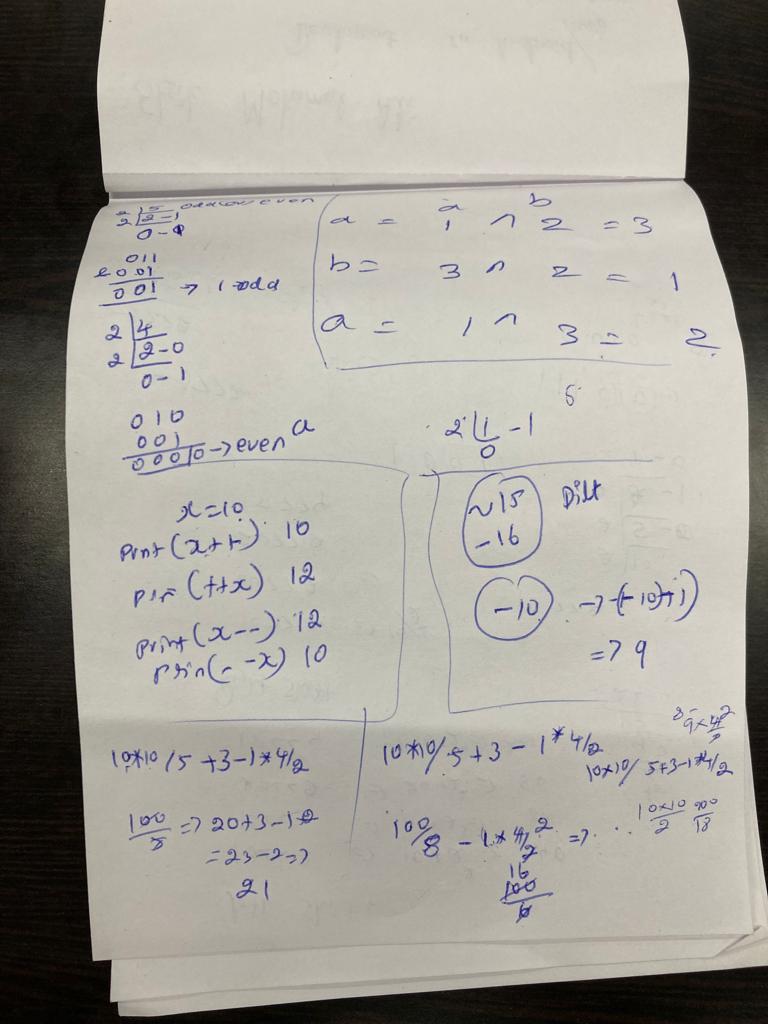 2 | 5 odd or even
2 | 2-1
0-
011
001
001 → 1-odd
2 | 4
2 | 2-0
0-1
010
001
00010 → even
a b
a = 1 ^ 2 = 3
b = 3 ^ 2 = 1
a = 1 ^ 3 = 2
a
2 | 1 - 1
0
x=10
print(x++) 10
prin(++x) 12
print(x--) 12
prin(--x) 10
~15
-16
-10 → -(-10)+1)
=> 9
10*10/5+3-1*4/2
100/5 => 20+3-1*2
=23-2=>
21
10*10/5+3-1*4/2
100/8 - 1*4/2 2 =>
16
100
10*10/5+3-1*4/2
10×10/2